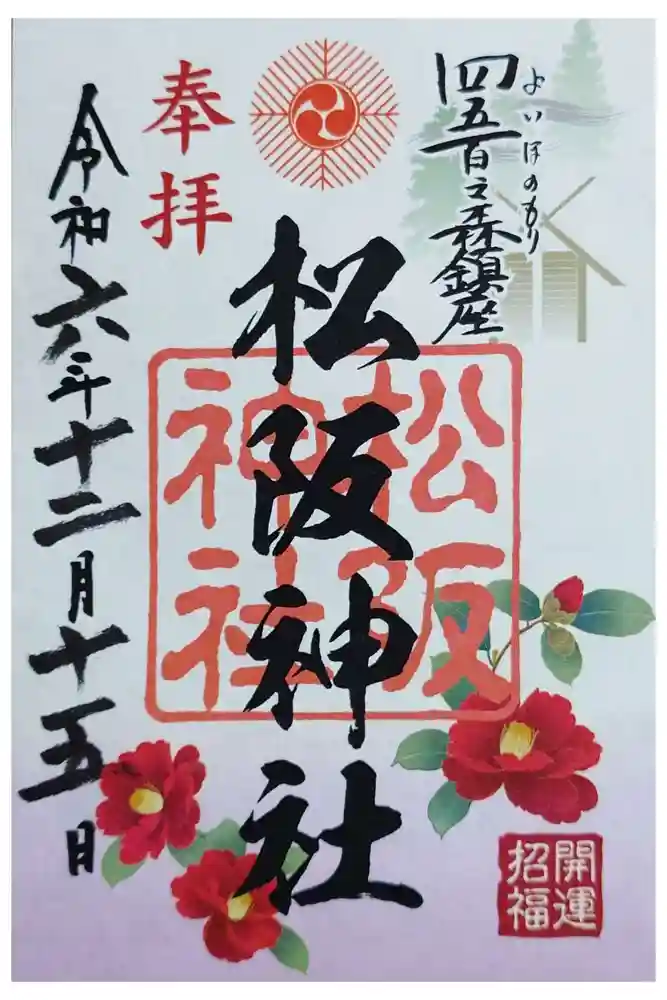 四五百之森鎮座
よいほのもり
奉拝
松阪神社
松阪
神社
令和六年十二月十五日
開運
招福